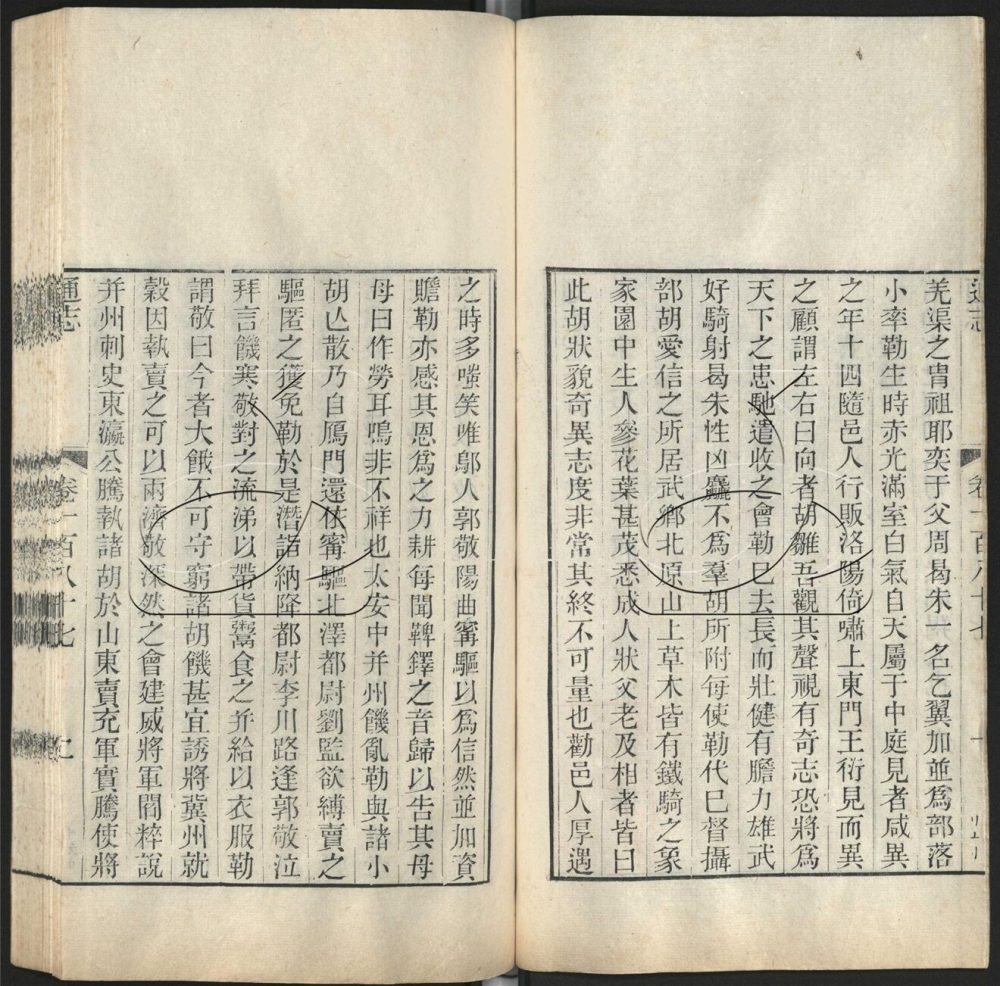 羌渠之胄祖耶奕于父周曷朱一名乞翼加並爲部落
小率勒生時赤光滿室白氣自天屬于中庭見者咸異
之年十四隨邑人行販洛陽倚嘯上東門王衍見而異
之顧謂左右曰向者胡雛吾觀其聲視有奇志恐將爲
天下之患馳遣收之會勒已去長而壯健有膽力雄武
好騎射曷朱性凶麤不爲羣胡所附每使勒代已督攝
部胡愛信之所居武鄉北原山上草木皆有鐵騎之象
家園中生人參花葉甚茂悉成人狀父老及相者皆曰
此胡狀貌奇異志度非常其終不可量也勸邑人厚遇
之時多嗤笑唯鄔人郭敬陽曲甯驅以爲信然並加資
贍勒亦感其恩爲之力耕每聞鞞鐸之音歸以告其母
母曰作勞耳鳴非不祥也太安中并州饑亂勒與諸小
胡亾散乃自鴈門還依甯驅北澤都尉劉監欲縛賣之
驅匿之獲免勒於是潛詣納降都尉李川路逢郭敬泣
拜言饑寒敬對之流涕以帶貨鬻食之并給以衣服勒
謂敬曰今者大餓不可守窮諸胡饑甚宜誘將冀州就
穀因執賣之可以兩濟敬深然之會建威將軍閻粹說
并州刺史東瀛公騰執諸胡於山東賣充軍實騰使將
通志
卷一百八十七